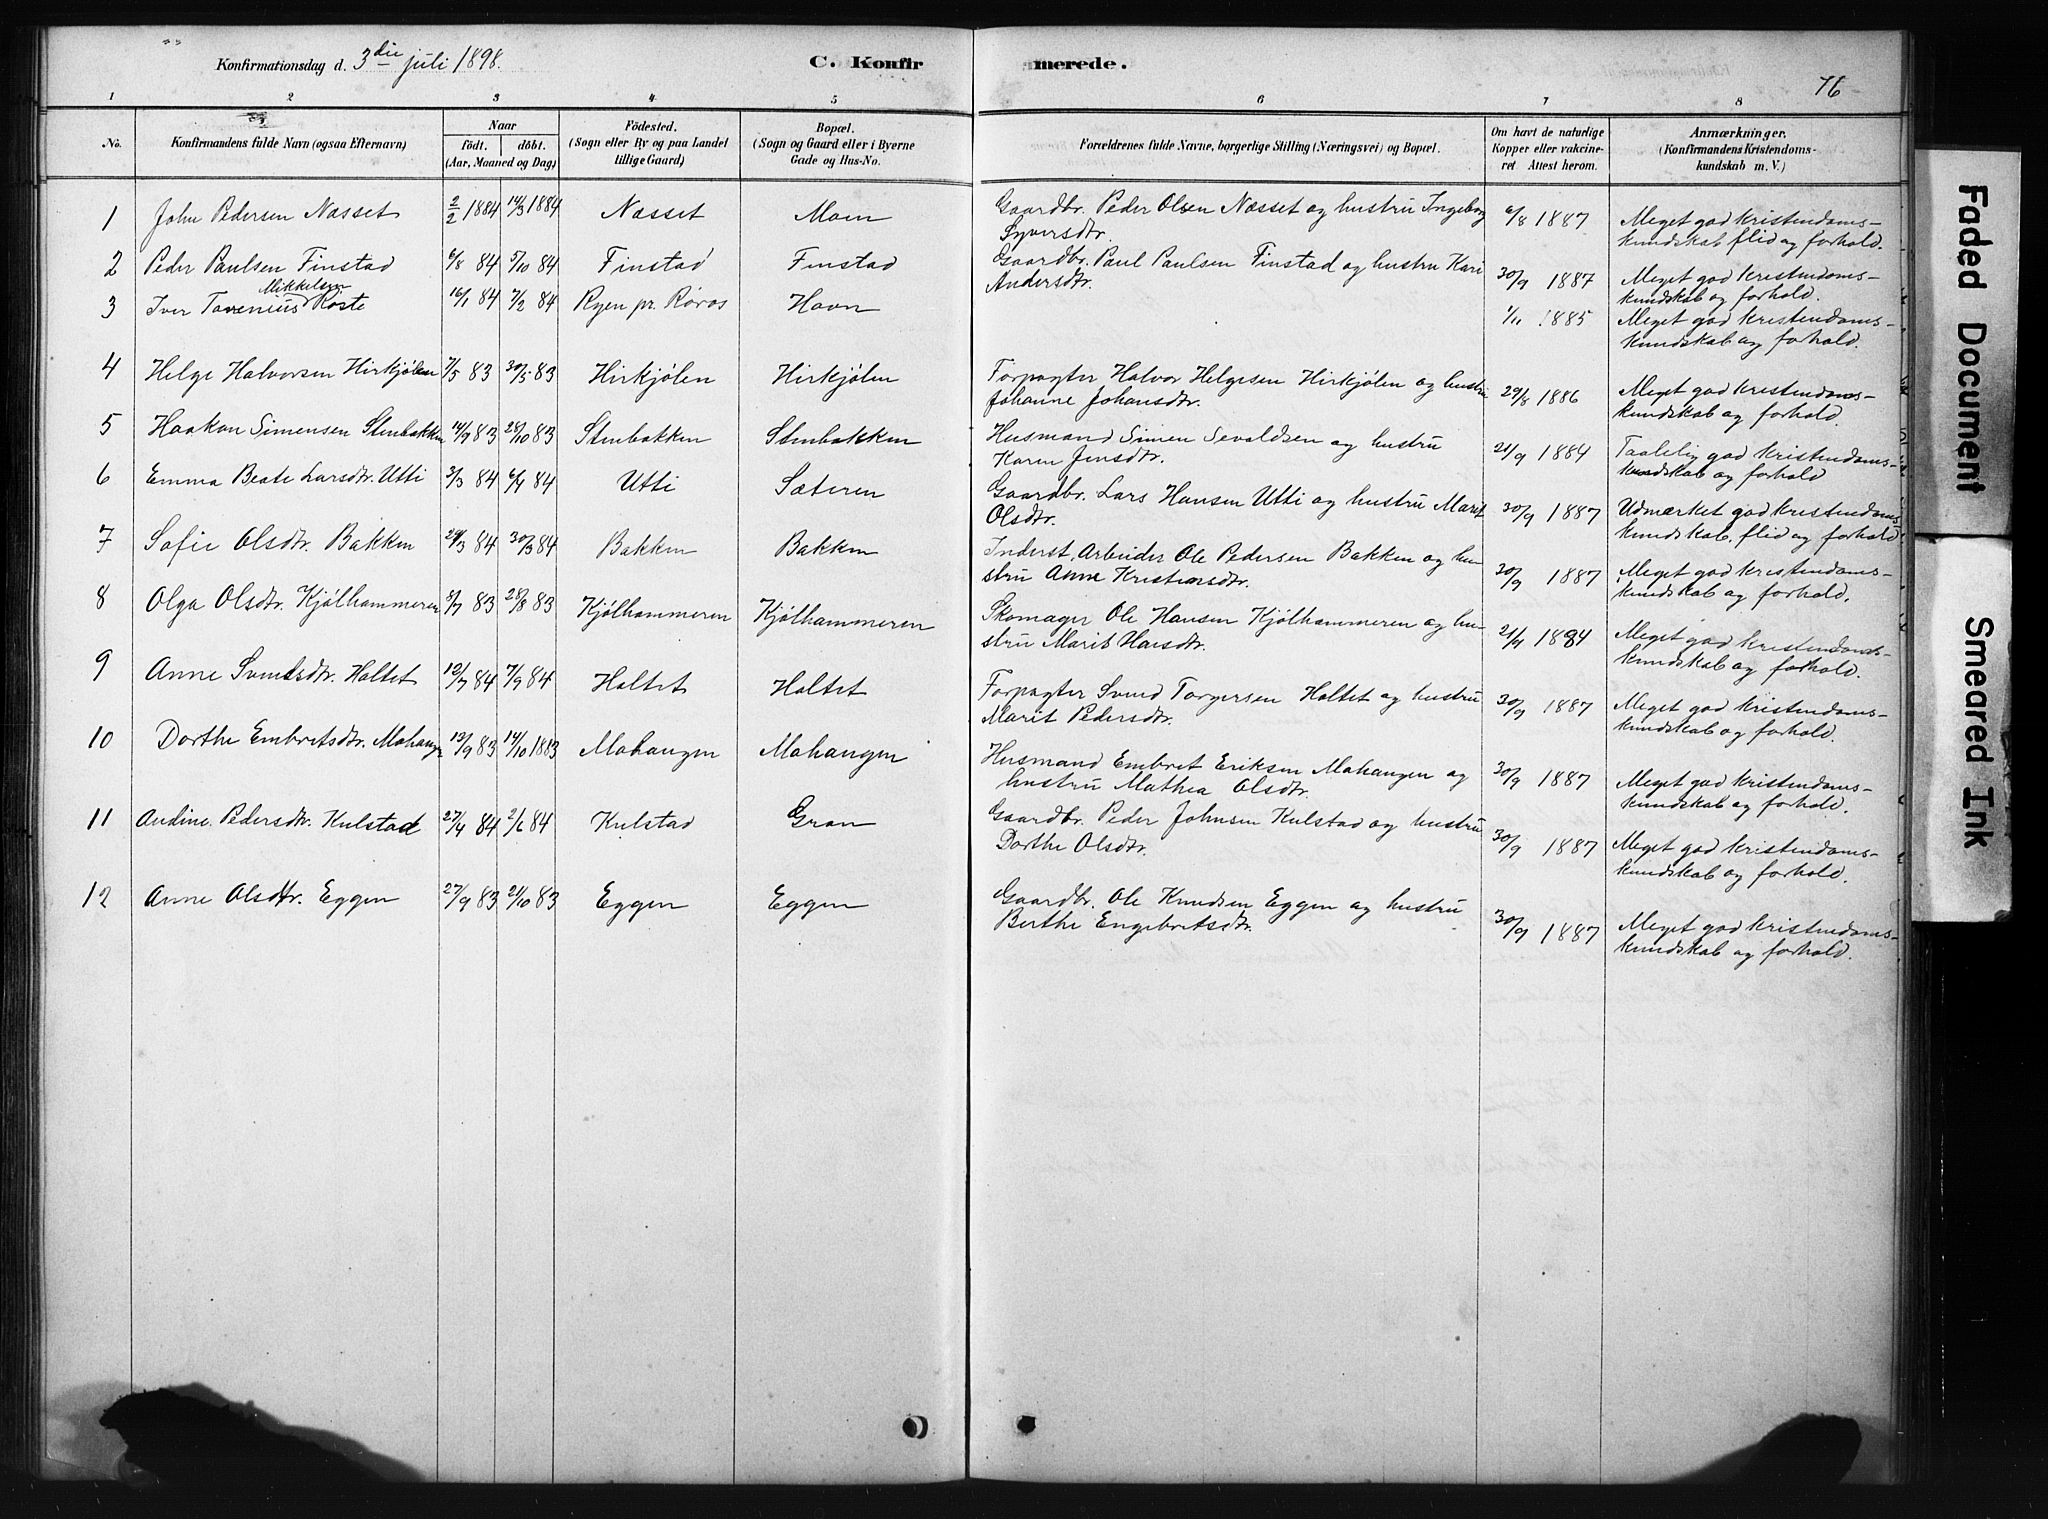 Konfirmationsdag d. 3die juli 1898.
C. Konfirmerede.
76
1 2 3 4 5 6 7 8
No. | Konfirmandens fulde Navn (ogsaa Efternavn) | Naar födt. döbt. (Aar, Maaned og Dag) | Födested. (Sogn eller By og paa Landet tillige Gaard) | Bopæl. (Sogn og Gaard eller i Byerne Gade og Hus-No. | Forældrenes fulde Navne, borgerlige Stilling (Næringsvei) og Bopæl. | Om havt de naturlige Kopper eller vakcineret Attest herom. | Anmærkninger. (Konfirmandens Kristendomskundskab m. V.)
1 John Pedersen Næsset 2/2 1884 14/3 1884 Næsset Moen Gaardbr. Peder Olsen Næsset og hustru Ingeborg Syversdtr. 6/8 1887 Meget god kristendomskundskab flid og forhold.
2 Peder Paulsen Finstad 6/8 84 5/10 84 Finstad Finstad Gaardbr. Paul Paulsen Finstad og hustru Kari Andersdtr. 30/9 1887 Meget god kristendomskundskab og forhold.
3 Iver Mikkelsen Røste 16/1 84 7/2 84 Ryen pr. Røros Havn 1/11 1885 Meget god kristendomskundskab og forhold.
4 Helge Halvorsen Hirkjølen 7/5 83 30/5 83 Hirkjølen Hirkjølen Forpagter Halvor Helgesen Hirkjølen og hustru Johanne Johansdtr. 29/8 1886 Meget god kristendomskundskab og forhold.
5 Haakon Simensen Stenbakken 14/9 83 28/10 83 Stenbakken Stenbakken Husmand Simen Sevaldsen og hustru Karen Jensdtr. 21/9 1884 Taalelig god kristendomskundskab og forhold
6 Emma Beate Larsdtr. Utti 3/3 84 6/4 84 Utti Sæteren Gaardbr. Lars Hansen Utti og hustru Marit Olsdtr. 30/9 1887 Udmærket god kristendomskundskab, flid og forhold
7 Sofie Olsdtr. Bakken 24/3 84 30/3 84 Bakken Bakken Inderst, Arbeider Ole Pedersen Bakken og hustru Anne Kristensdtr. 30/9 1887 Meget god kristendomskundskab og forhold.
8 Olga Olsdtr. Kjølhammeren 8/7 83 28/8 83 Kjølhammeren Kjølhammeren Skomager Ole Hansen Kjølhammeren og hustru Marit Hansdtr. 21/9 1884 Meget god kristendomskundskab og forhold.
9 Anne Svendsdtr. Holtet 12/7 84 7/9 84 Holtet Holtet Forpagter Svend Torgersen Holtet og hustru Marit Pedersdtr. 30/9 1887 Meget god kristendomskundskab og forhold.
10 Dorthe Embretsdtr. Mohaugen 13/9 83 14/10 1883 Mohaugen Mohaugen Husmand Embret Eriksen Mohaugen og hustru Mathea Olsdtr. 30/9 1887 Meget god kristendomskundskab og forhold.
11 Andine Pedersdtr. Kulstad 27/4 84 2/6 84 Kulstad Gran Gaardbr. Peder Johnsen Kulstad og hustru Dorthe Olsdtr. 30/9 1887 Meget god kristendomskundskab og forhold.
12 Anne Olsdtr. Eggen 27/9 83 21/10 83 Eggen Eggen Gaardbr. Ole Knudsen Eggen og hustru Berthe Engebretsdtr. 30/9 1887 Meget god kristendomskundskab og forhold.
Faded Document
Smeared Ink